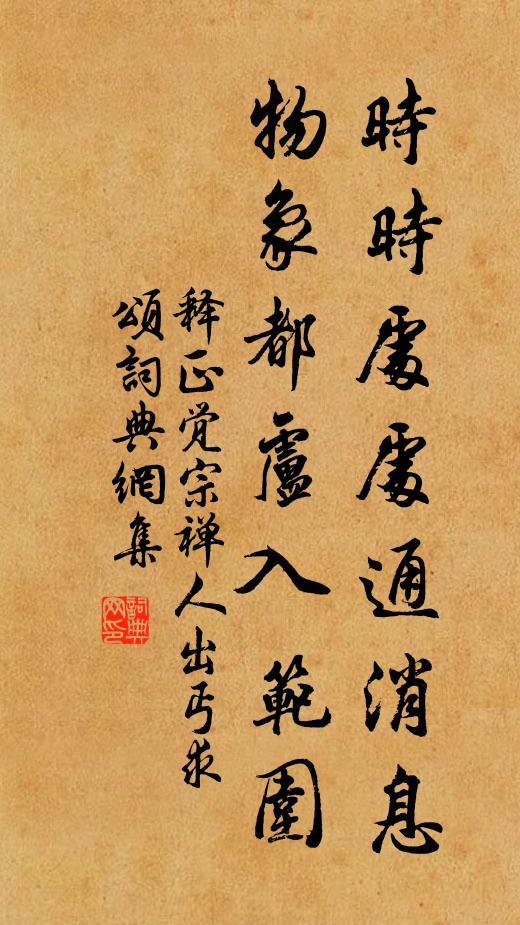 時時處處通消息
物象都盧入範圍
释正觉宗禅人出丐求
頌詞典網集
詞典
网印